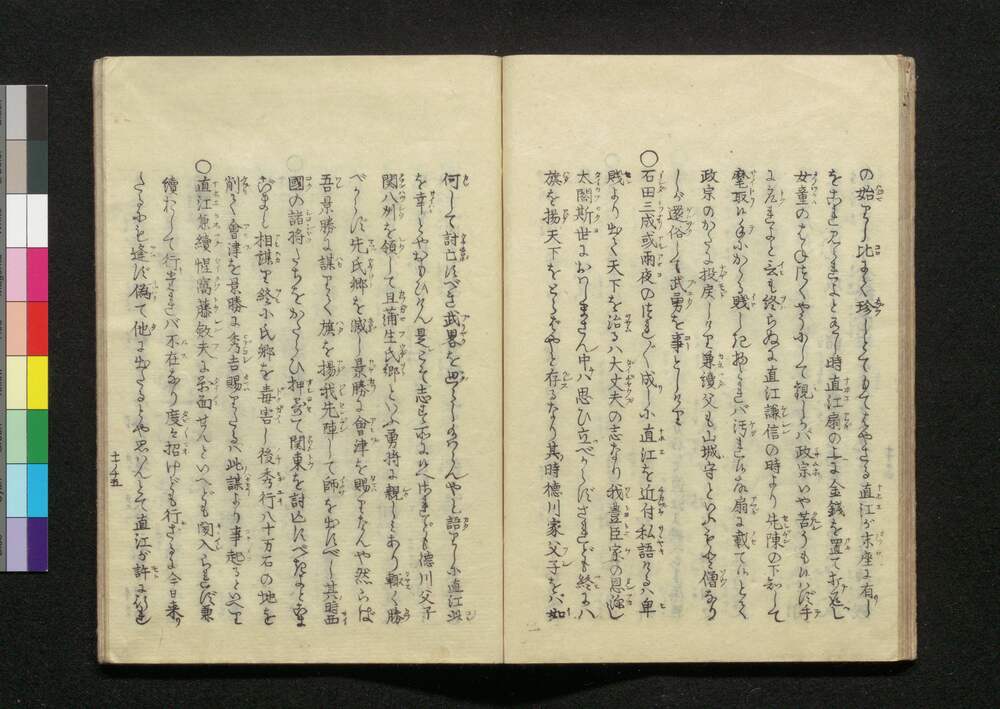 の始なりし比にて珍しとてもてはやさる直江が末座に有し
をこれ見られよとある時直江扇の上に金銭を置て打返し
女童のはねつくやうにして観しかバ政宗いや苦うもいハず手
にとられよと云も終らぬに直江謙信の時より先陳の下知して
麾取い手にかゝる賤しき物とれバ汚れい故扇に載ていとて
政宗のかたに投戻しけり兼續父も山城守といふを僧なり
しが還俗して武勇を事としけり
○石田三成或雨夜のつれ〴〵成しに直江を近付私語けるハ卑
賤より出て天下を治るハ大丈夫の志なり我豊臣家の恩深し
太閤斯世におハしまさん中ハ思ひ立べからずされども終にハ
旗を揚天下をとらばやと存るなり其時徳川家父子をバ如
何して討亡すべき武略を廻らしなハんやと語りしに直江此
を幸とやおもひけん是こそ志す所にハへけれども徳川父子
関八州を領して且蒲生氏郷といふ勇将に親しミあり輙く勝
べからず先氏郷を滅し景勝に會津を賜りなんや然らば
吾景勝に謀りて旗を揚我先陣して師を出すべし其時西
國の諸将たちをかたらひ押寄て関東を討亡すべきなりと
定まし相謀り終に氏郷を毒害し後秀行八十万石の地を
削て會津を景勝に秀吉賜りたるハ此謀より事起るといへり
○直江兼續惺窩藤斂夫に對面せんといへども聞入られず兼
續わざして行けれバ不在なり度々招けども行ざるに今日来
たるにも逢ず偽て他に出たるとや思ハんとて直江が許に
十ノ五